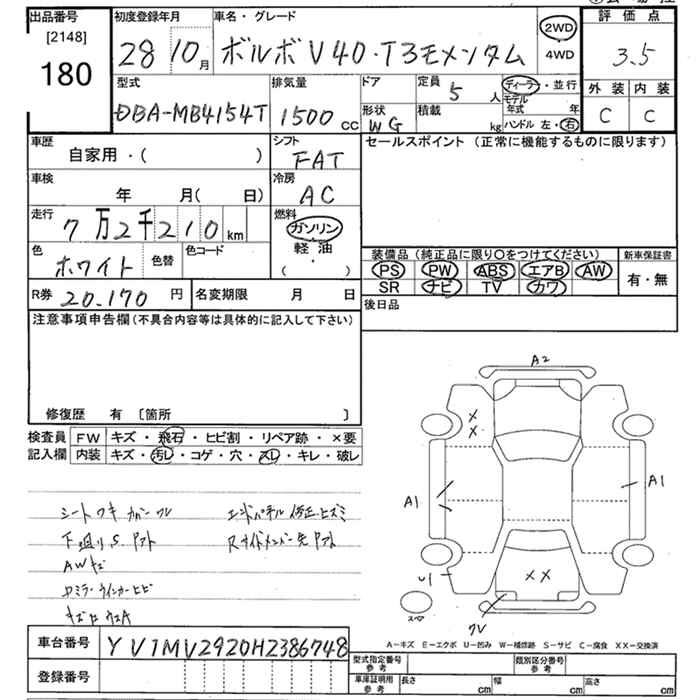 出品番号 初度登録年月 車名・グレード 評価点
[2148]
180
28 10月 ボルボV40・T3モメンタム 2WD 4WD 3.5
外装 内装
C C
型式 排気量 ドア 定員 5 人 ディーラー・並行
DBA-MB4154T 1500 CC
モデル年式 年
形状 WG 積載 kg ハンドル 左・右
車歴 自家用・( ) シフト FAT
セールスポイント (正常に機能するものに限ります)
車検 年 月( 日) 冷房 AC
走行 7万2千210km 燃料 ガソリン・軽油・( )
色 ホワイト 色替 色コード
装備品(純正品に限り〇をつけてください) 新車保証書
PS PW ABS エアB AW 有・無
SR ナビ TV カワ
R券 20,170円 名変期限 月 日
後日品
注意事項申告欄(不具合内容等は具体的に記入して下さい)
修復歴 有 [箇所 ]
検査員 FW キズ・飛石・ヒビ割・リペア跡・×要
記入欄 内装 キズ・汚レ・コゲ・穴・スレ・キレ・破レ
シートワキカバーワレ エンドパネル修正ヒズミ
下廻りS. Rサイドメンバー先
AWキズ
ミラーウインカーヒビ
A2
X
X
A1
A1
U1
XX
スペア
車台番号 YV1MV2920H2386748
登録番号
A-キズ E-エクボ U-凹み W-補修跡 S-サビ C-腐食 XX-交換済
型式指定番号 参考 類別区分番号 参考
車庫証明用 参考 長さ cm 幅 cm 高さ cm